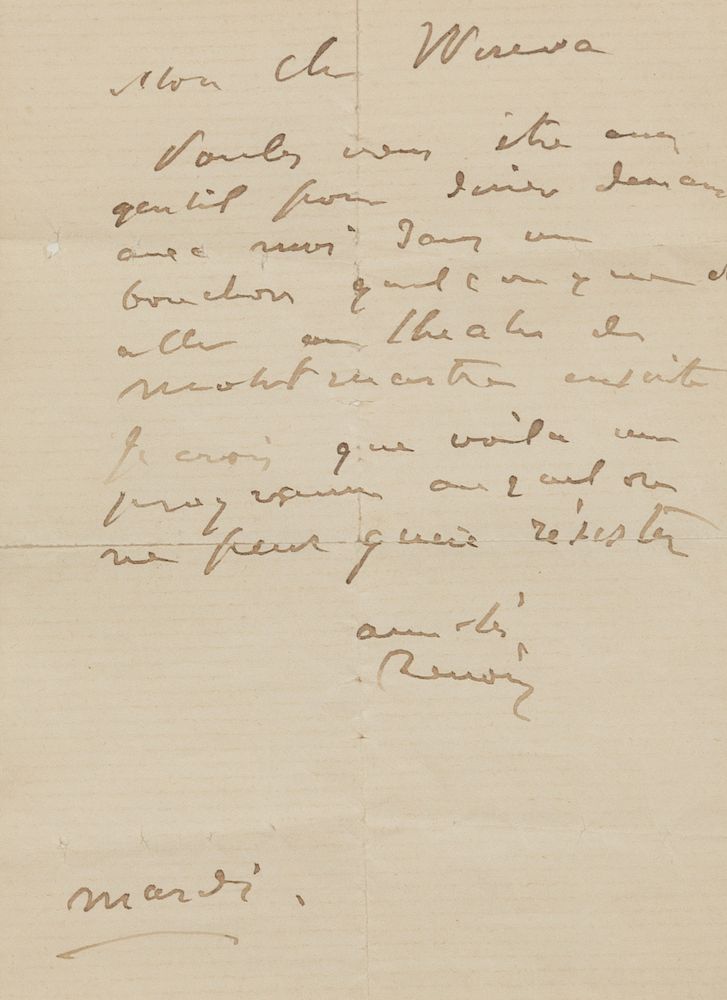 Mon Ch Wisewa
Voulez vous être assez
gentil pour diner demain
avec moi dans un
bouchon quelconque et
aller au theatre de
Montmartre ensuite
Je crois que voila un
programme auquel on
ne peut guere résister
amitiés
Renoir
mardi.